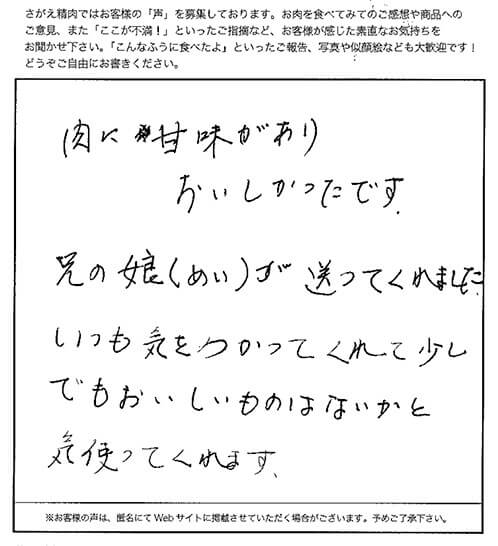 さがえ精肉ではお客様の「声」を募集しております。お肉を食べてみてのご感想や商品への
ご意見、また「ここが不満!」といったご指摘など、お客様が感じた素直なお気持ちを
お聞かせ下さい。「こんなふうに食べたよ」といったご報告、写真や似顔絵なども大歓迎です!
どうぞご自由にお書きください。
肉に甘味があり
おいしかったです.
兄の娘(めい)が送ってくれました.
いつも気をつかってくれて少し
でもおいしいものはないかと
気使ってくれます.
※お客様の声は、匿名にてWebサイトに掲載させていただく場合がございます。予めご了承下さい。